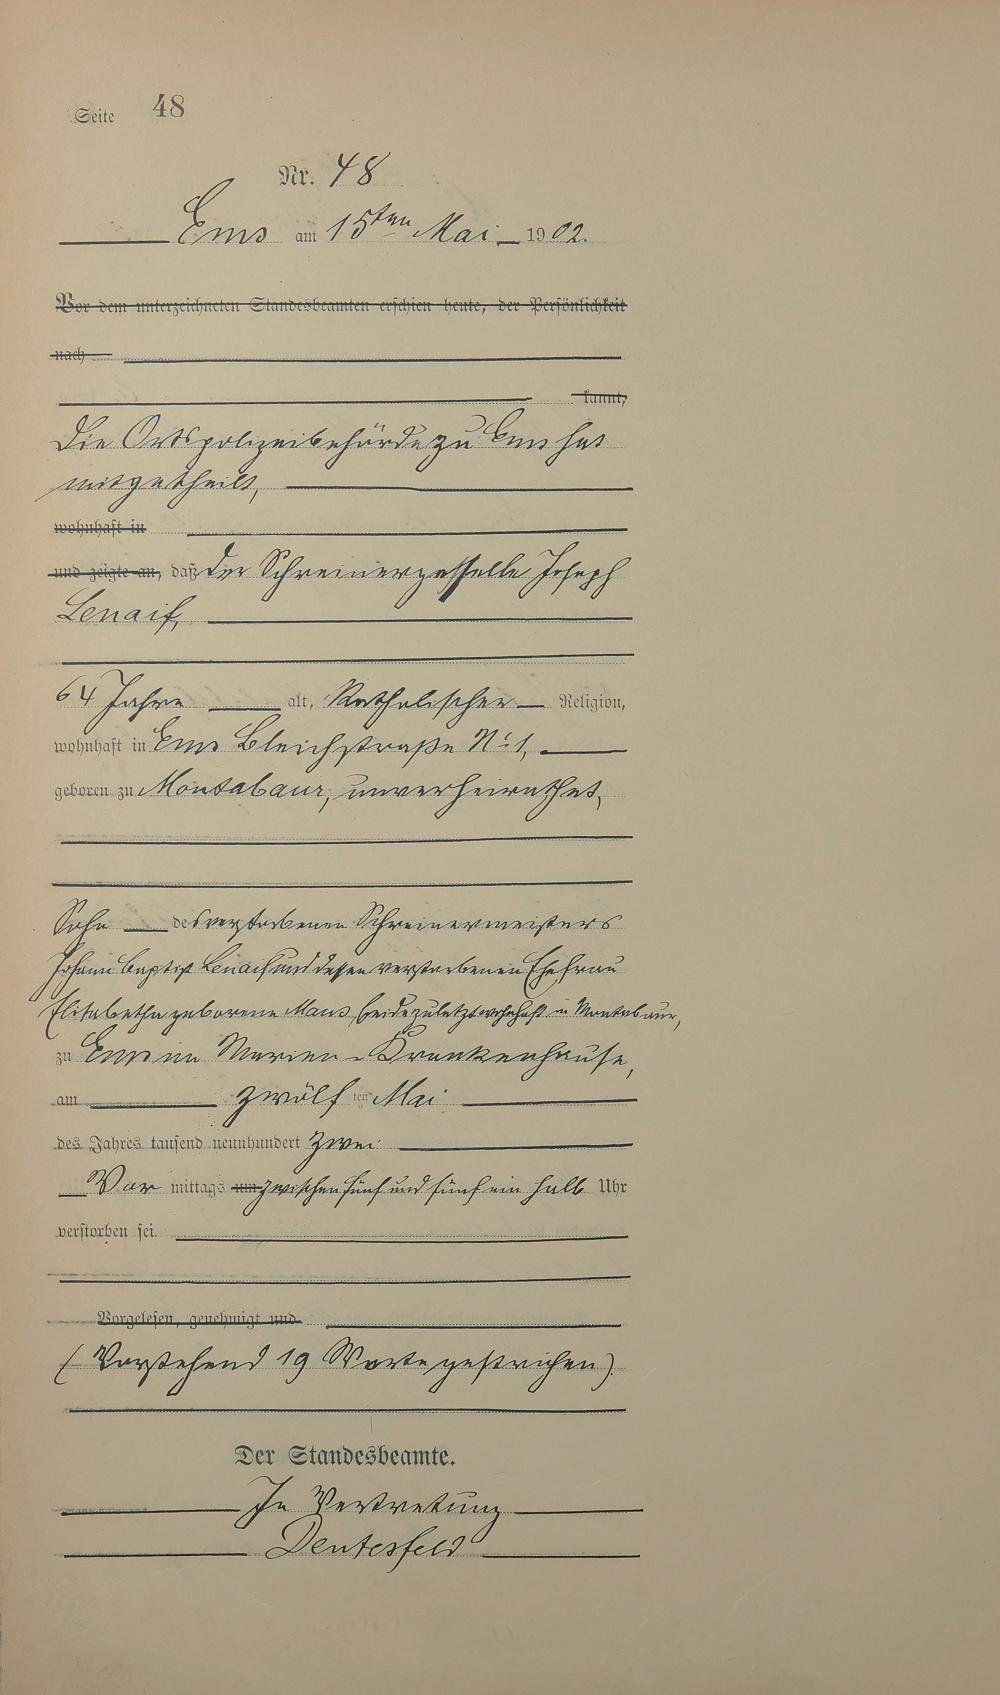 Seite 48
Nr. 48
Ems am 15ten Mai 1902.
Vor dem unterzeichneten Standesbeamten erschien heute, der Persönlichkeit
nach
kannt,
Die Ortspolizeibehörde zu Ems hat
mitgetheilt,
wohnhaft in
und zeigte an, daß der Schreinergeselle Joseph
Lenaif,
64 Jahre alt, Katholischer Religion,
wohnhaft in Ems Bleichstraße No 1,
geboren zu Montabaur, unverheirathet,
Sohn des verstorbenen Schreinermeisters
Johann Baptist Lenaif und dessen verstorbenen Ehefrau
Elisabetha geborene Maus, beide zuletzt wohnhaft in Montabaur,
zu Ems im Marien-Krankenhause,
am zwölften Mai
des Jahres tausend neunhundert zwei
Vor mittags um zwischen fünf und fünf ein halb Uhr
verstorben sei.
Vorgelesen, genehmigt und
(Vorstehend 19 Worte gestrichen).
Der Standesbeamte.
In Vertretung